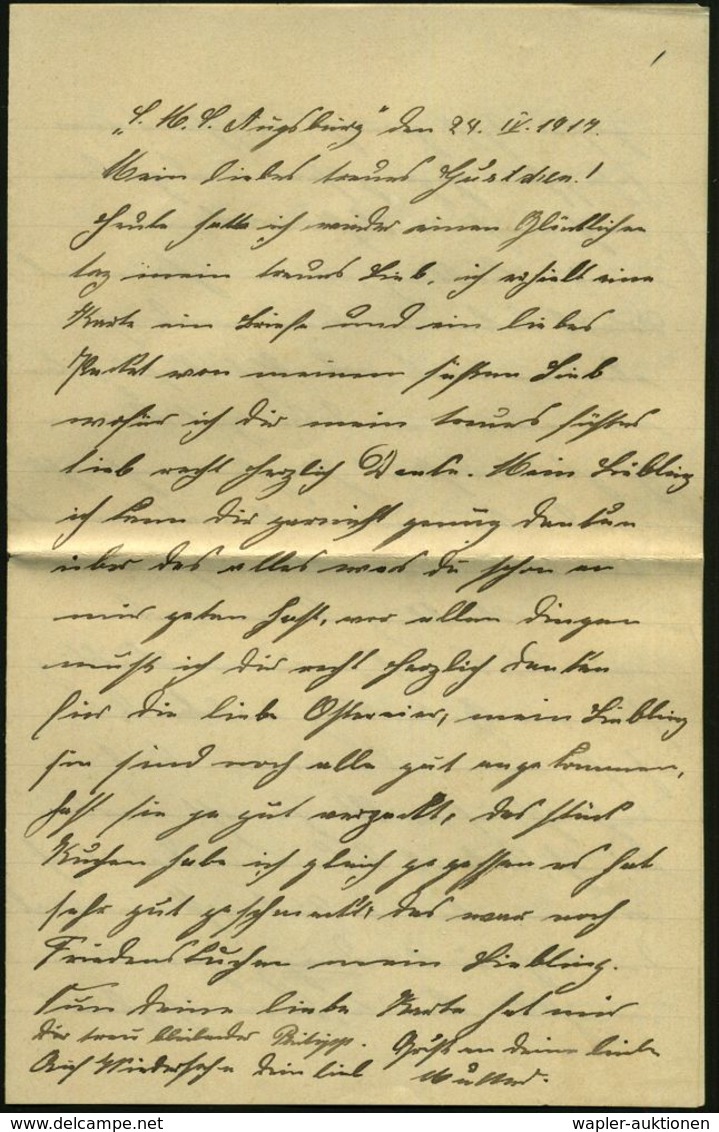 1
„S. M. S. Augsburg" den 24. IV. 1917.
Mein liebes treues Gustchen!
Heute hatte ich wieder einen Glücklichen
tag mein treues Lieb, ich erhielt eine
Karte ein Briefe und ein liebes
Packet von meinem süßen Lieb
wofür ich dir mein treues süßes
lieb recht herzlich Danke. Mein Liebling
ich kann dir garnicht genug danken
über das alles was du schon an
mir getan hast, vor allen dingen
muß ich dir recht herzlich danken
für die liebe Ostereier, mein Liebling
sie sind noch alle gut angekommen,
hast sie ja gut verpackt, das stück
Kuchen habe ich gleich gegessen es hat
sehr gut geschmeckt, das war noch
Friedenskuchen mein Liebling.
Nun deine liebe Karte hat mir
Dir treu bleibender Philipp. Gruß an deine liebe
Auf Wiedersehn dein lieb Mutter.
wapler-auktionen